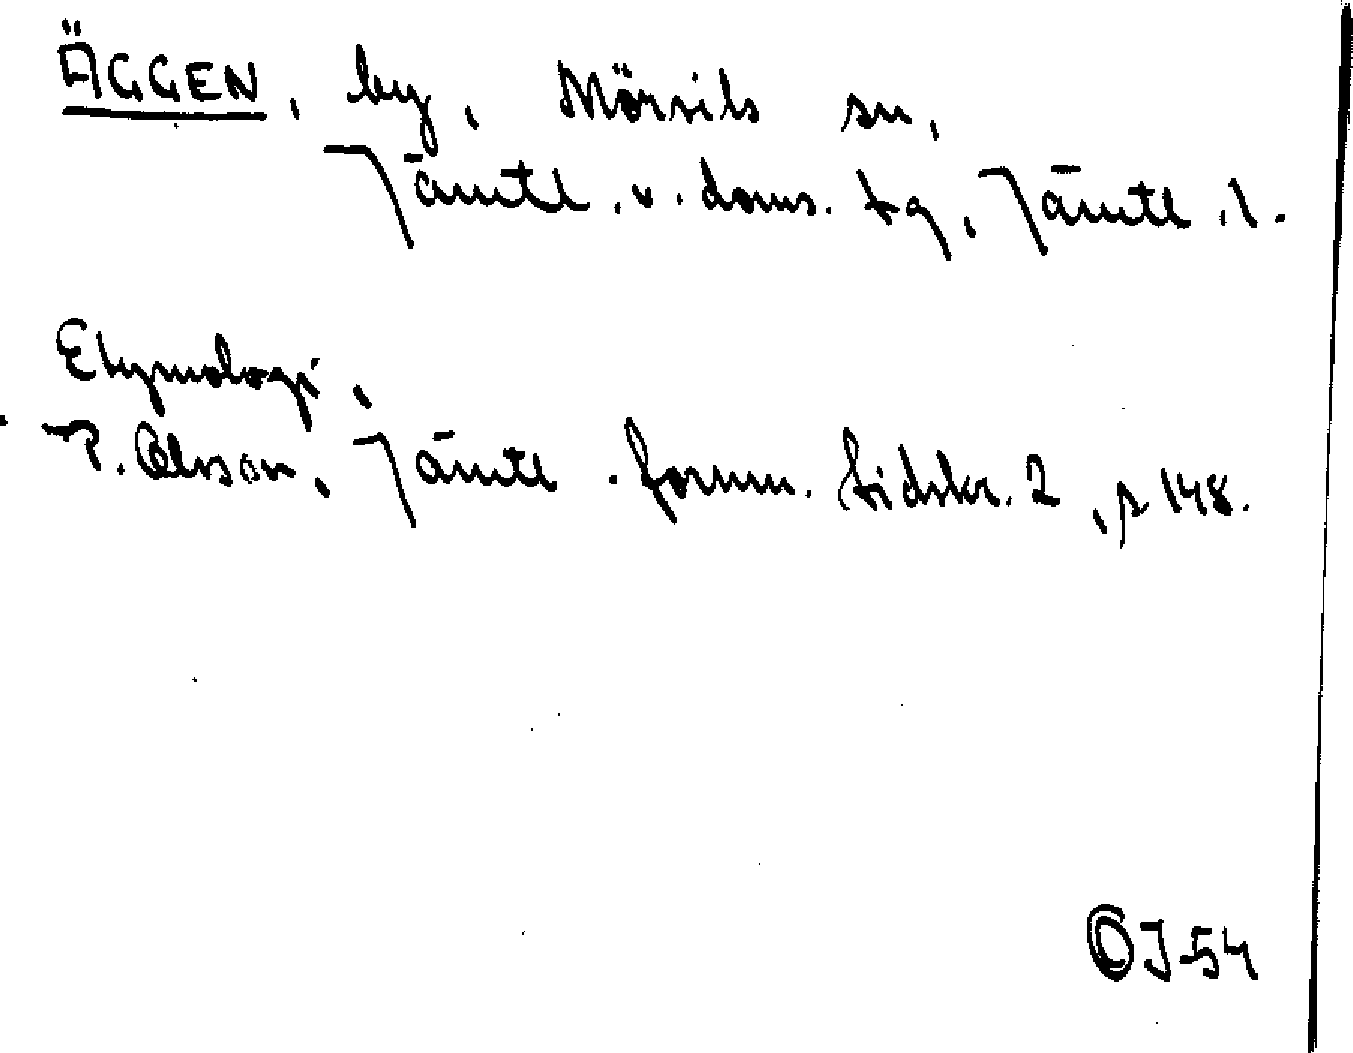 ÄGGEN, by, Mörsils sn,
Jämtl. v. doms. tg, Jämtl. l.
Etymologi,
P. Olsson, Jämtl. fornm. tidskr. 2, p 148.
OJ-54